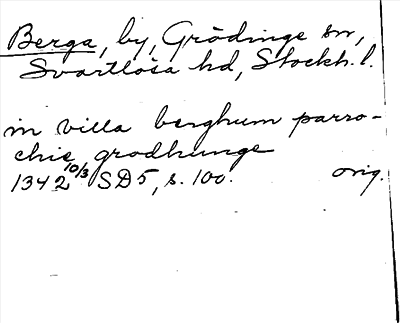 Berga, by, Grödinge sn,
Svartlösa hd, Stockh. l.
in villa berghum parro-
chie grodhunge
1342 10/3 SD5, s. 100. orig.